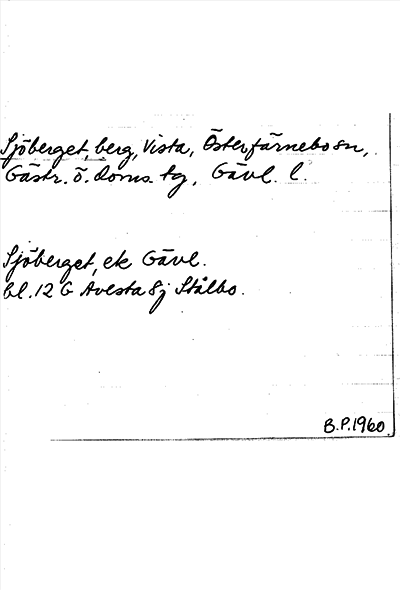 Sjöberget, berg, Vista, Österfärnebo sn,
Gästr. ö. doms. tg, Gävl. l.
Sjöberget, ek Gävl.
bl. 12 G Avesta 8j Stålbo.
B.P. 1960